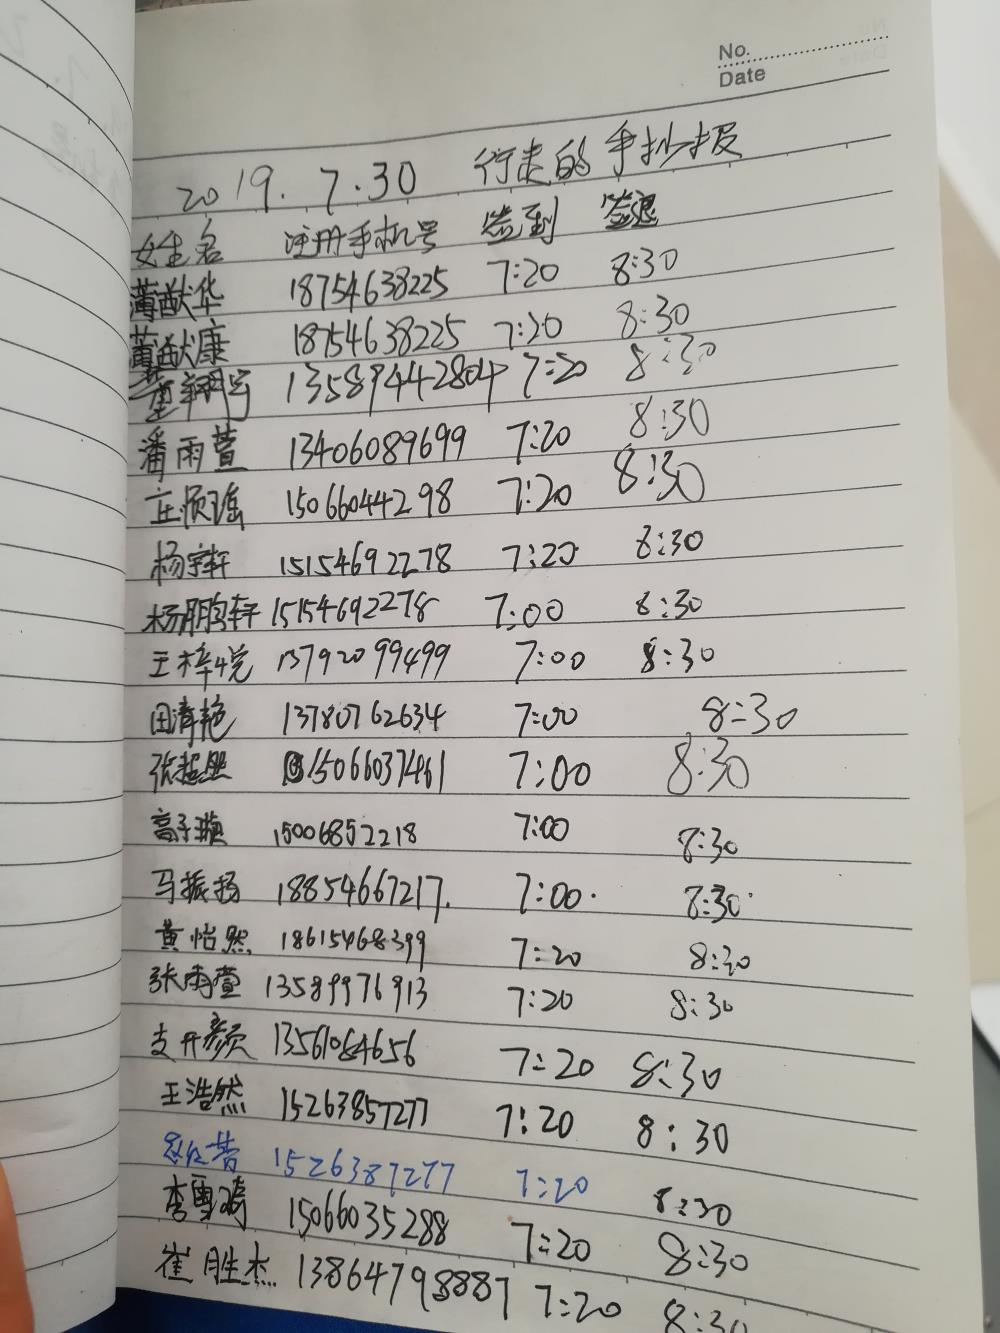 No.
Date
2019.7.30 行走的手抄报
女生名 注册手机号 签到 签退
薄猷华 18754638225 7:20 8:30
薄猷康 18754638225 7:20 8:30
13589442804 7:20 8:30
潘雨萱 13406089699 7:20 8:30
庄须瑶 15066044298 7:20 8:30
杨宇轩 15154692278 7:20 8:30
杨鹏轩 15154692278 7:00 8:30
王梓悦 13792099499 7:00 8:30
田清艳 13780762634 7:00 8:30
张超然 15066037461 7:00 8:30
高子璇 15006852218 7:00 8:30
马振扬 18854667217. 7:00. 8:30
黄怡然 18615468399 7:20 8:30
张雨萱 13589976913 7:20 8:30
支开颜 13561084656 7:20 8:30
王浩然 15263857277 7:20 8:30
1526387277 7:20 8:30
李雪琦 15066035288 7:20 8:30
崔胜杰 13864798887 7:20 8:30